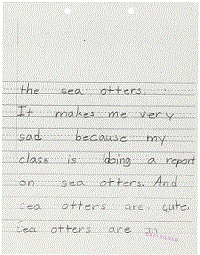 the sea otters.
It makes me very
sad because my
class is doing a report
on sea otters. And
sea otters are cute.
Sea otters are